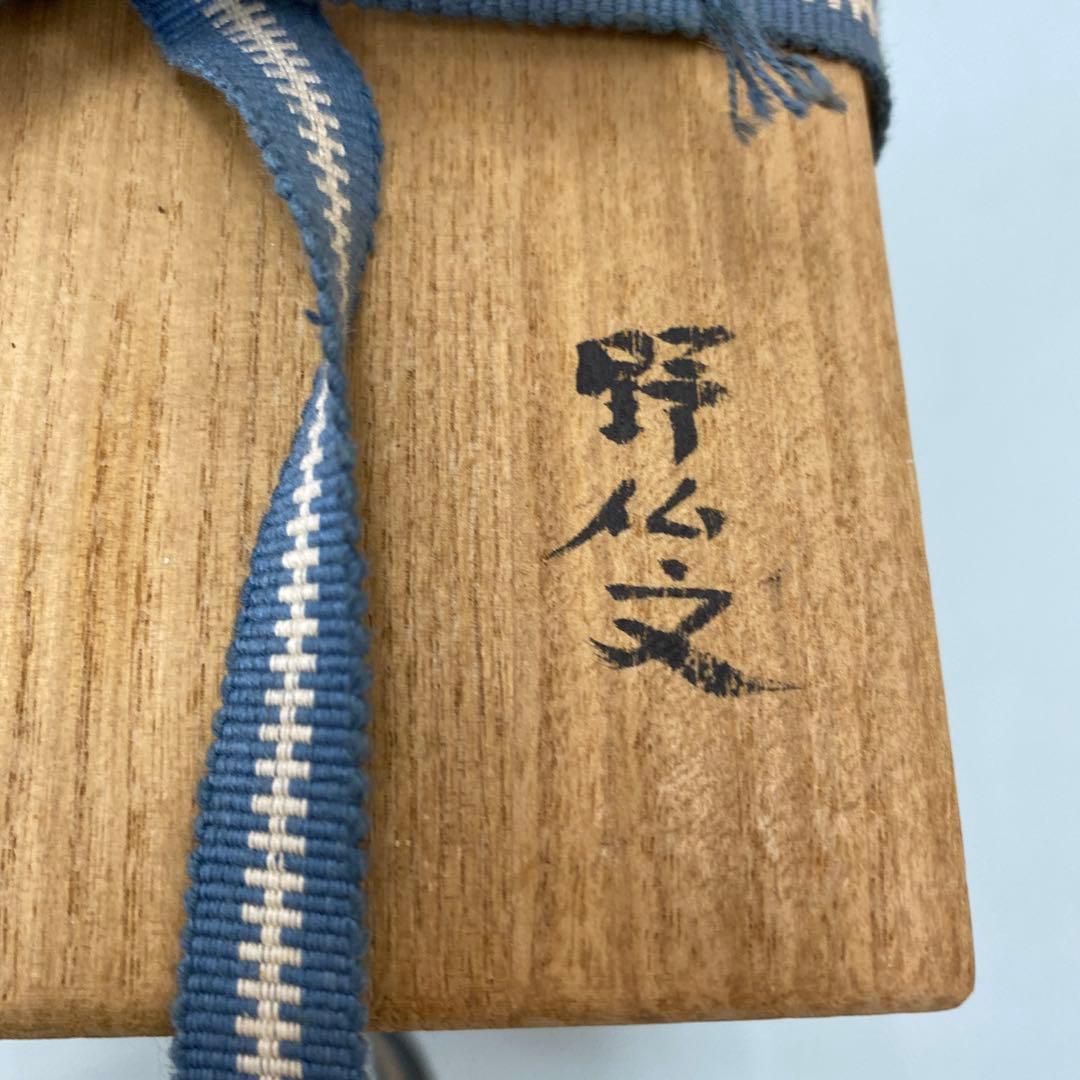 野仏文